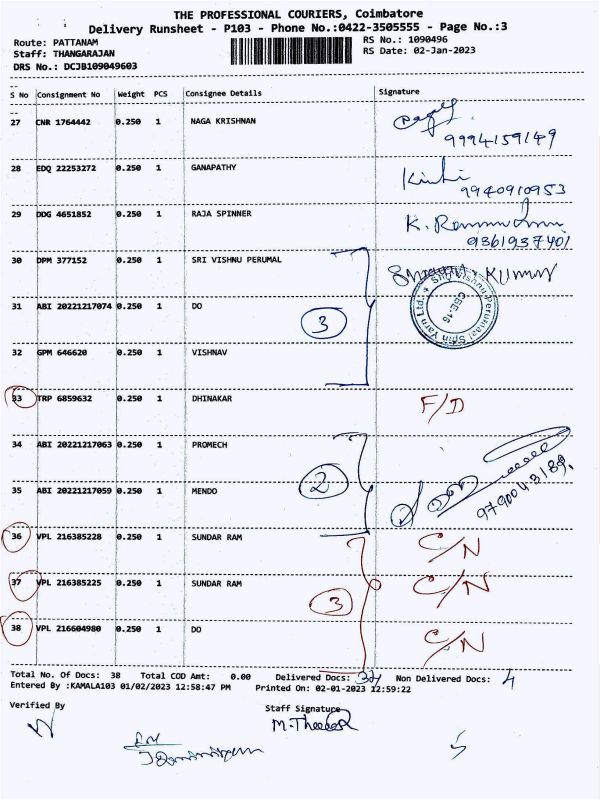 THE PROFESSIONAL COURIERS, Coimbatore
Delivery Runsheet - P103 - Phone No.:0422-3505555 - Page No.:3
Route: PATTANAM RS No.: 1090496
Staff: THANGARAJAN RS Date: 02-Jan-2023
DRS No.: DCJB109049603
S No Consignment No Weight PCS Consignee Details Signature
27 CNR 1764442 0.250 1 NAGA KRISHNAN
9994159149
28 EDQ 22253272 0.250 1 GANAPATHY
9940910953
29 DDG 4651852 0.250 1 RAJA SPINNER
9361937401
30 DPM 377152 0.250 1 SRI VISHNU PERUMAL KUMAR
31 ABI 20221217074 0.250 1 DO
3
Shri Vishnu Perumaal Spin Yarn Ltd.
CBE-16
32 GPM 646620 0.250 1 VISHNAV
33 TRP 6859632 0.250 1 DHINAKAR F/D
34 ABI 20221217063 0.250 1 PROMECH
2
35 ABI 20221217059 0.250 1 MENDO
9790043189
36 VPL 216385228 0.250 1 SUNDAR RAM C/N
37 VPL 216385225 0.250 1 SUNDAR RAM C/N
3
38 VPL 216604980 0.250 1 DO C/N
Total No. Of Docs: 38 Total COD Amt: 0.00 Delivered Docs: 34 Non Delivered Docs: 4
Entered By :KAMALA103 01/02/2023 12:58:47 PM Printed On: 02-01-2023 12:59:22
Verified By Staff Signature